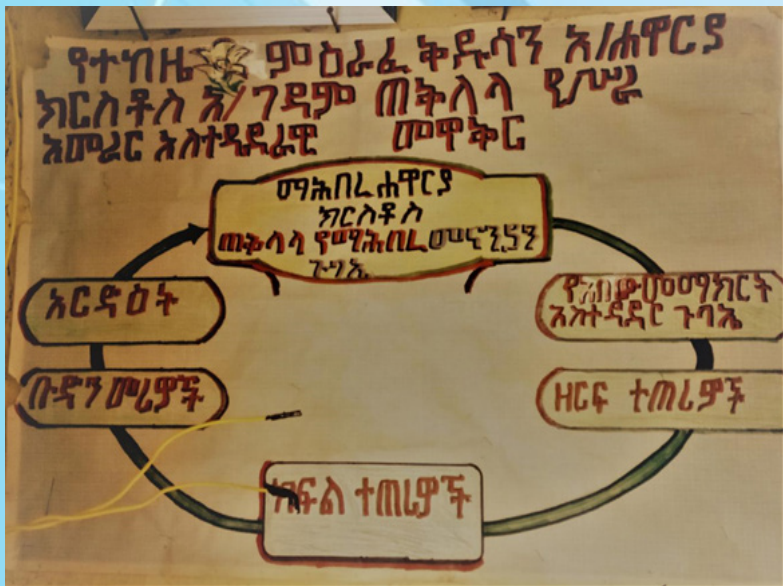 የተከዜ ምዕራፈ ቅዱሳን አ/ሐዋርያ
ክርስቶስ አ/ገዳም ጠቅላላ የሥራ
አመራር አስተዳደራዊ መዋቅር
ማሕበረ ሐዋርያ
ክርስቶስ
ጠቅላላ የማሕበረ መናንያን
ጉባኤ
የአበው መማክርት
አስተዳደር ጉባኤ
ዘርፍ ተጠሪዎች
ክፍል ተጠሪዎች
ቡድን መሪዎች
አርድዕት